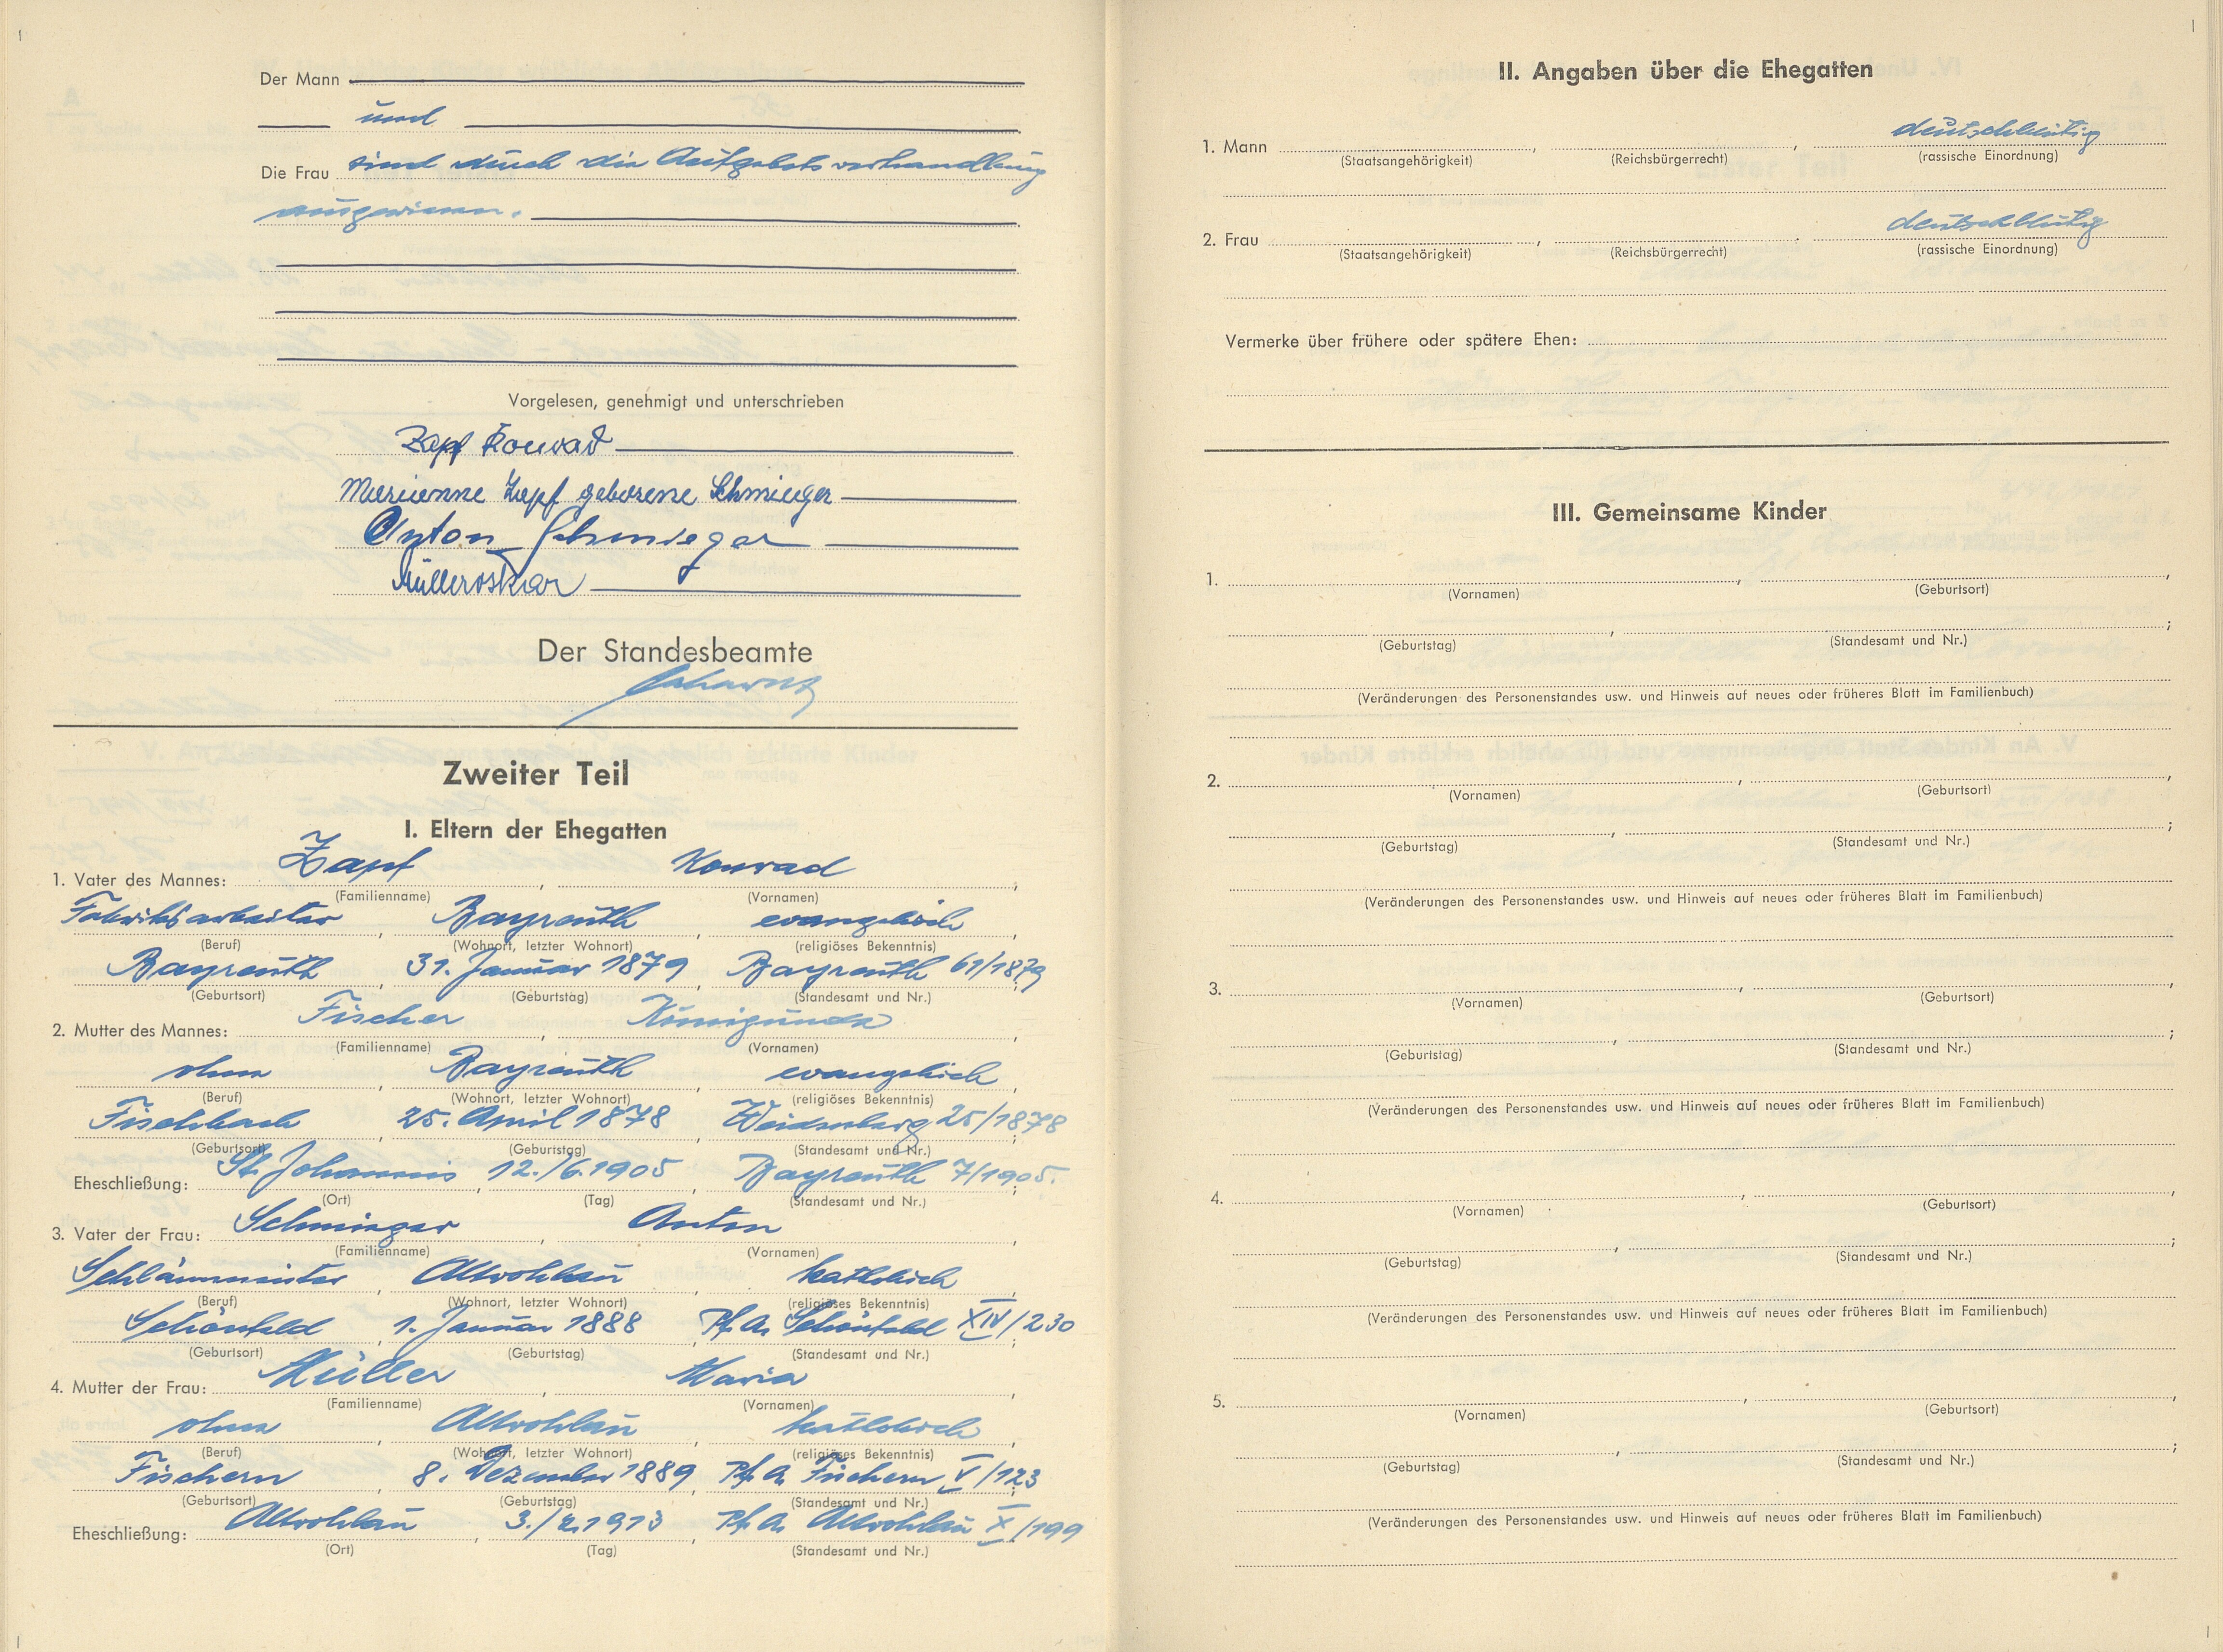 Der Mann
und
Die Frau sind durch die Aufgebotsverhandlung
ausgewiesen.
Vorgelesen, genehmigt und unterschrieben
Zapf Konrad
Marianne Zapf geborene Schmieger
Anton Schmieger
Müller Oskar
Der Standesbeamte
Zweiter Teil
I. Eltern der Ehegatten
1. Vater des Mannes: Zapf, Konrad;
(Familienname) (Vornamen)
Fabrikarbeiter, Bayreuth, evangelisch,
(Beruf) (Wohnort, letzter Wohnort) (religiöses Bekenntnis)
Bayreuth, 31. Januar 1879, Bayreuth 61/1879;
(Geburtsort) (Geburtstag) (Standesamt und Nr.)
2. Mutter des Mannes: Fischer, Kunigunda,
(Familienname) (Vornamen)
ohne, Bayreuth, evangelisch,
(Beruf) (Wohnort, letzter Wohnort) (religiöses Bekenntnis)
Fischbach, 25. April 1878, Weidenberg 25/1878;
(Geburtsort) (Geburtstag) (Standesamt und Nr.)
Eheschließung: St. Johannis, 12./6.1905, Bayreuth 7/1905.;
(Ort) (Tag) (Standesamt und Nr.)
3. Vater der Frau: Schmieger, Anton,
(Familienname) (Vornamen)
Schlämmeister, Altrohlau, katholisch,
(Beruf) (Wohnort, letzter Wohnort) (religiöses Bekenntnis)
Schönfeld, 1. Januar 1888, Pf.A. Schönfeld XIV/230;
(Geburtsort) (Geburtstag) (Standesamt und Nr.)
4. Mutter der Frau: Müller, Maria,
(Familienname) (Vornamen)
ohne, Altrohlau, katholisch,
(Beruf) (Wohnort, letzter Wohnort) (religiöses Bekenntnis)
Fischern, 8. Dezember 1889, Pf.A. Fischern V/123;
(Geburtsort) (Geburtstag) (Standesamt und Nr.)
Eheschließung: Altrohlau, 3./2.1913, Pf.A. Altrohlau X/199
(Ort) (Tag) (Standesamt und Nr.)
II. Angaben über die Ehegatten
1. Mann , , deutschblütig
(Staatsangehörigkeit) (Reichsbürgerrecht) (rassische Einordnung)
2. Frau , . deutschblütig
(Staatsangehörigkeit) (Reichsbürgerrecht) (rassische Einordnung)
Vermerke über frühere oder spätere Ehen:
III. Gemeinsame Kinder
1. , ,
(Vornamen) (Geburtsort)
, ;
(Geburtstag) (Standesamt und Nr.)
(Veränderungen des Personenstandes usw. und Hinweis auf neues oder früheres Blatt im Familienbuch)
2. , ,
(Vornamen) (Geburtsort)
, ;
(Geburtstag) (Standesamt und Nr.)
(Veränderungen des Personenstandes usw. und Hinweis auf neues oder früheres Blatt im Familienbuch)
3. , ,
(Vornamen) (Geburtsort)
, ;
(Geburtstag) (Standesamt und Nr.)
(Veränderungen des Personenstandes usw. und Hinweis auf neues oder früheres Blatt im Familienbuch)
4. , ,
(Vornamen) (Geburtsort)
, ;
(Geburtstag) (Standesamt und Nr.)
(Veränderungen des Personenstandes usw. und Hinweis auf neues oder früheres Blatt im Familienbuch)
5. , ,
(Vornamen) (Geburtsort)
, ;
(Geburtstag) (Standesamt und Nr.)
(Veränderungen des Personenstandes usw. und Hinweis auf neues oder früheres Blatt im Familienbuch)